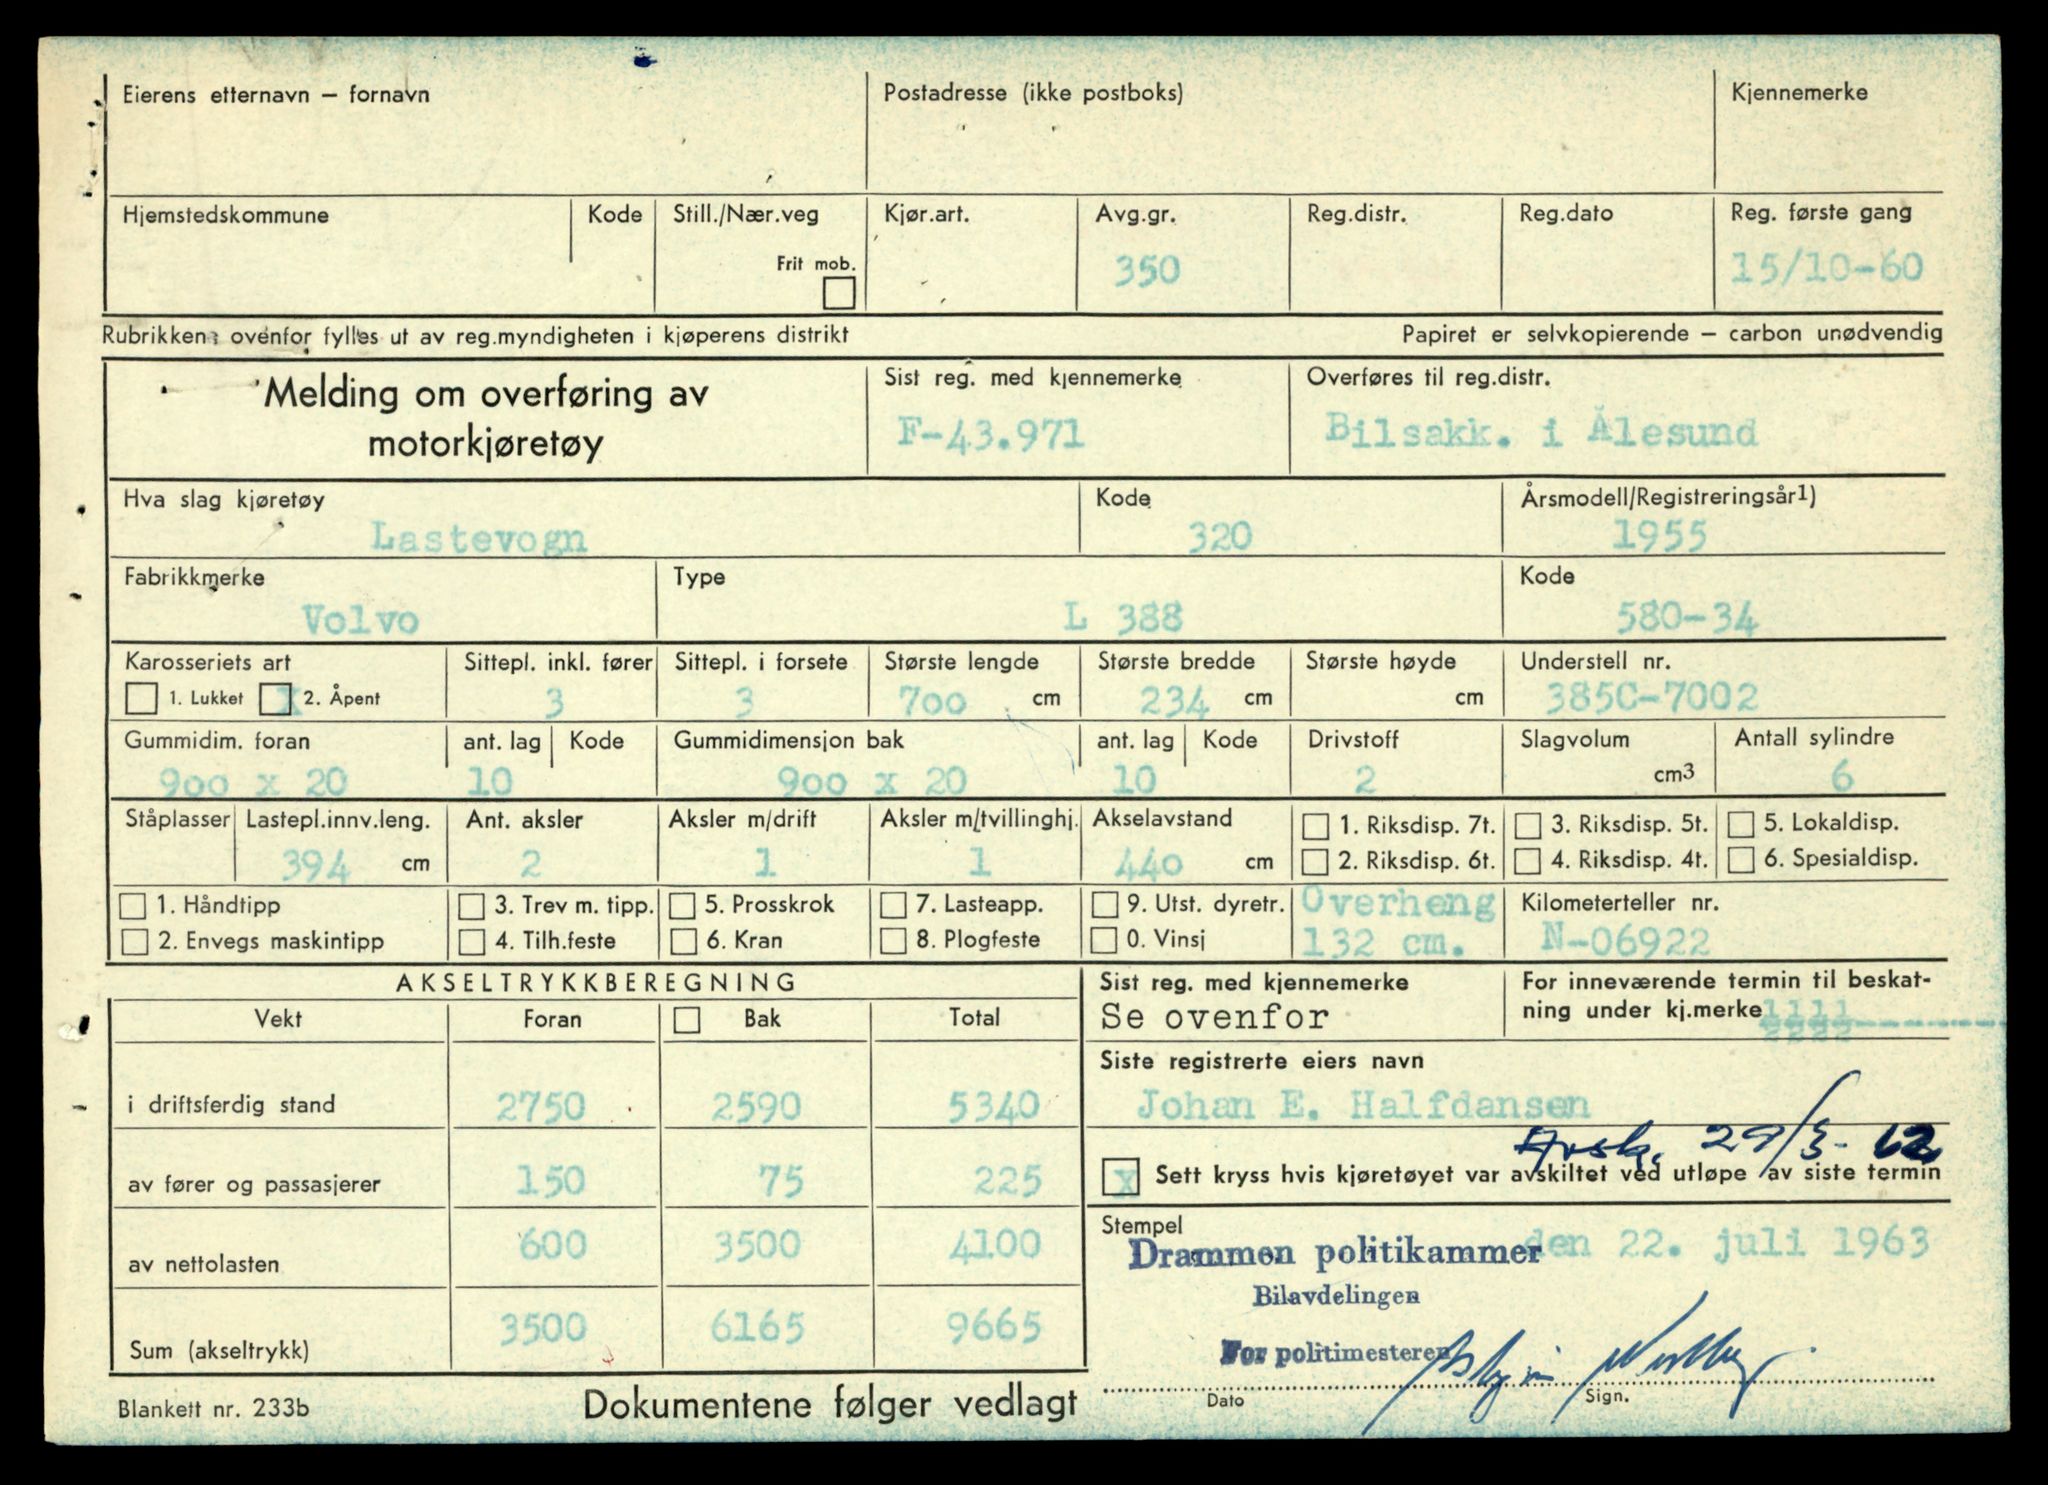 Eierens etternavn – fornavn Postadresse (ikke postboks) Kjennemerke
Hjemstedskommune Kode Still./Nær.veg Kjør.art. Avg.gr. Reg.distr. Reg.dato Reg. første gang
Frit mob. 350 15/10-60
Rubrikkene ovenfor fylles ut av reg.myndigheten i kjøperens distrikt Papiret er selvkopierende – carbon unødvendig
Melding om overføring av motorkjøretøy
Sist reg. med kjennemerke Overføres til reg.distr.
F-43.971 Bilsakk. i Ålesund
Hva slag kjøretøy Kode Årsmodell/Registreringsår1)
Lastevogn 320 1955
Fabrikkmerke Type Kode
Volvo L 388 580-34
Karosseriets art Sittepl. inkl. fører Sittepl. i forsete Største lengde Største bredde Største høyde Understell nr.
1. Lukket X 2. Åpent 3 3 700 cm 234 cm cm 385C-7002
Gummidim. foran ant. lag Kode Gummidimensjon bak ant. lag Kode Drivstoff Slagvolum Antall sylindre
900 x 20 10 900 x 20 10 2 cm3 6
Ståplasser Lastepl.innv.leng. Ant. aksler Aksler m/drift Aksler m/tvillinghj. Akselavstand 1. Riksdisp. 7t. 3. Riksdisp. 5t. 5. Lokaldisp.
394 cm 2 1 1 440 cm 2. Riksdisp. 6t. 4. Riksdisp. 4t. 6. Spesialdisp.
1. Håndtipp 3. Trev m. tipp. 5. Prosskrok 7. Lasteapp. 9. Utst. dyretr. Overheng Kilometerteller nr.
2. Envegs maskintipp 4. Tilh.feste 6. Kran 8. Plogfeste 0. Vinsj 132 cm. N-06922
AKSELTRYKKBEREGNING Sist reg. med kjennemerke For inneværende termin til beskat-
Vekt Foran Bak Total Se ovenfor ning under kj.merke
Siste registrerte eiers navn
i driftsferdig stand 2750 2590 5340 Johan E. Halfdansen
Avsk. 29/3-62
av fører og passasjerer 150 75 225 x Sett kryss hvis kjøretøyet var avskiltet ved utløpe av siste termin
Stempel
av nettolasten 600 3500 4100 Drammen politikammer den 22. juli 1963
Bilavdelingen
Sum (akseltrykk) 3500 6165 9665 For politimesteren
Dato Sign.
Blankett nr. 233b Dokumentene følger vedlagt